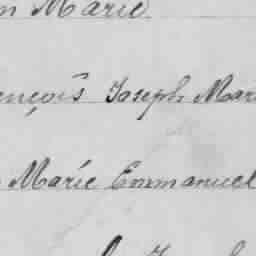 n Marie
ençois Joseph Mari
Marie Emmanuel